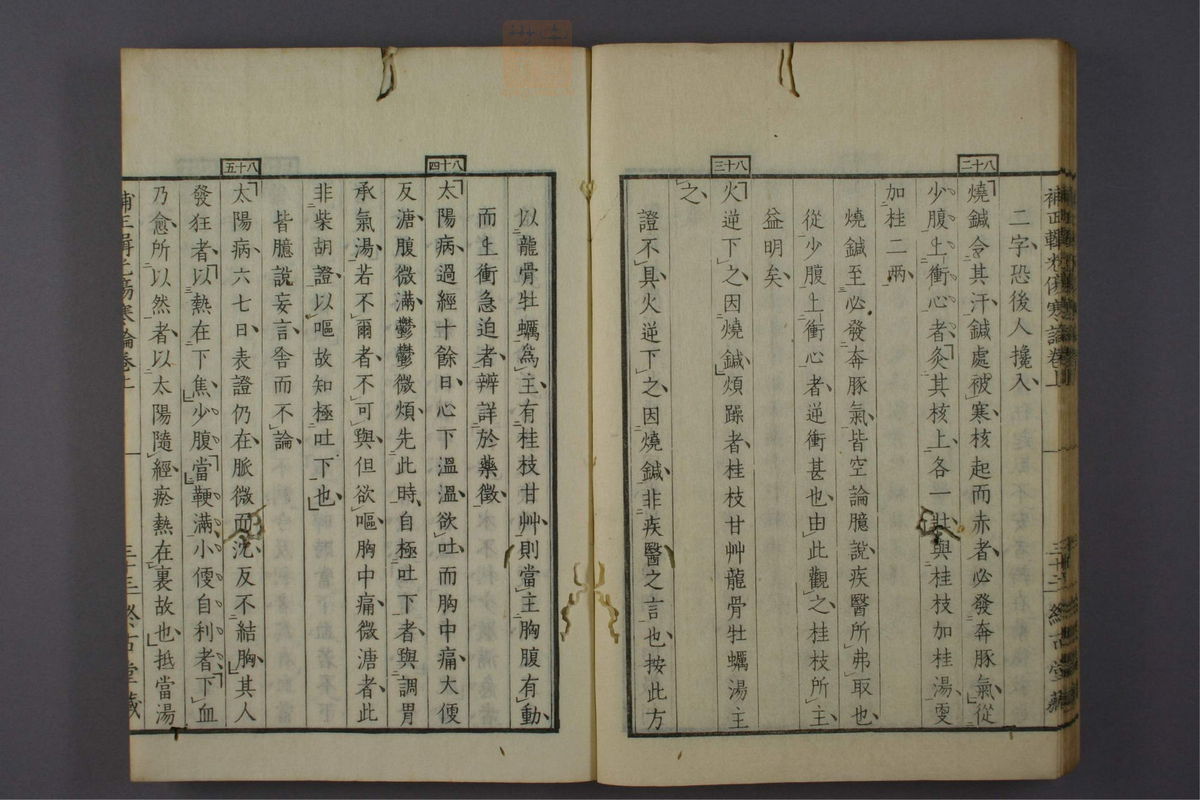 補正輯光傷寒論卷上
二字恐後人攙入
八十二
燒鍼令其汗鍼處被寒核起而赤者必發奔豚氣從
少腹上衝心者灸其核上各一壯與桂枝加桂湯更
加桂二兩
燒鍼至必發奔豚氣皆空論臆說疾醫所弗取也
從少腹上衝心者逆衝甚也由此觀之桂枝所主
益明矣
八十三
火逆下之因燒鍼煩躁者桂枝甘艸龍骨牡蠣湯主
之
證不具火逆下之因燒鍼非疾醫之言也按此方
以龍骨牡蠣為主有桂枝甘艸則當主胸腹有動
而上衝急迫者辨詳於藥徵
八十四
太陽病過經十餘日心下溫溫欲吐而胸中痛大便
反溏腹微滿鬱鬱微煩先此時自極吐下者與調胃
承氣湯若不爾者不可與但欲嘔胸中痛微溏者此
非柴胡證以嘔故知極吐下也
皆臆說妄言舍而不論
八十五
太陽病六七日表證仍在脈微而沈反不結胸其人
發狂者以熱在下焦少腹當鞕滿小便自利者下血
乃愈所以然者以太陽隨經瘀熱在裏故也抵當湯